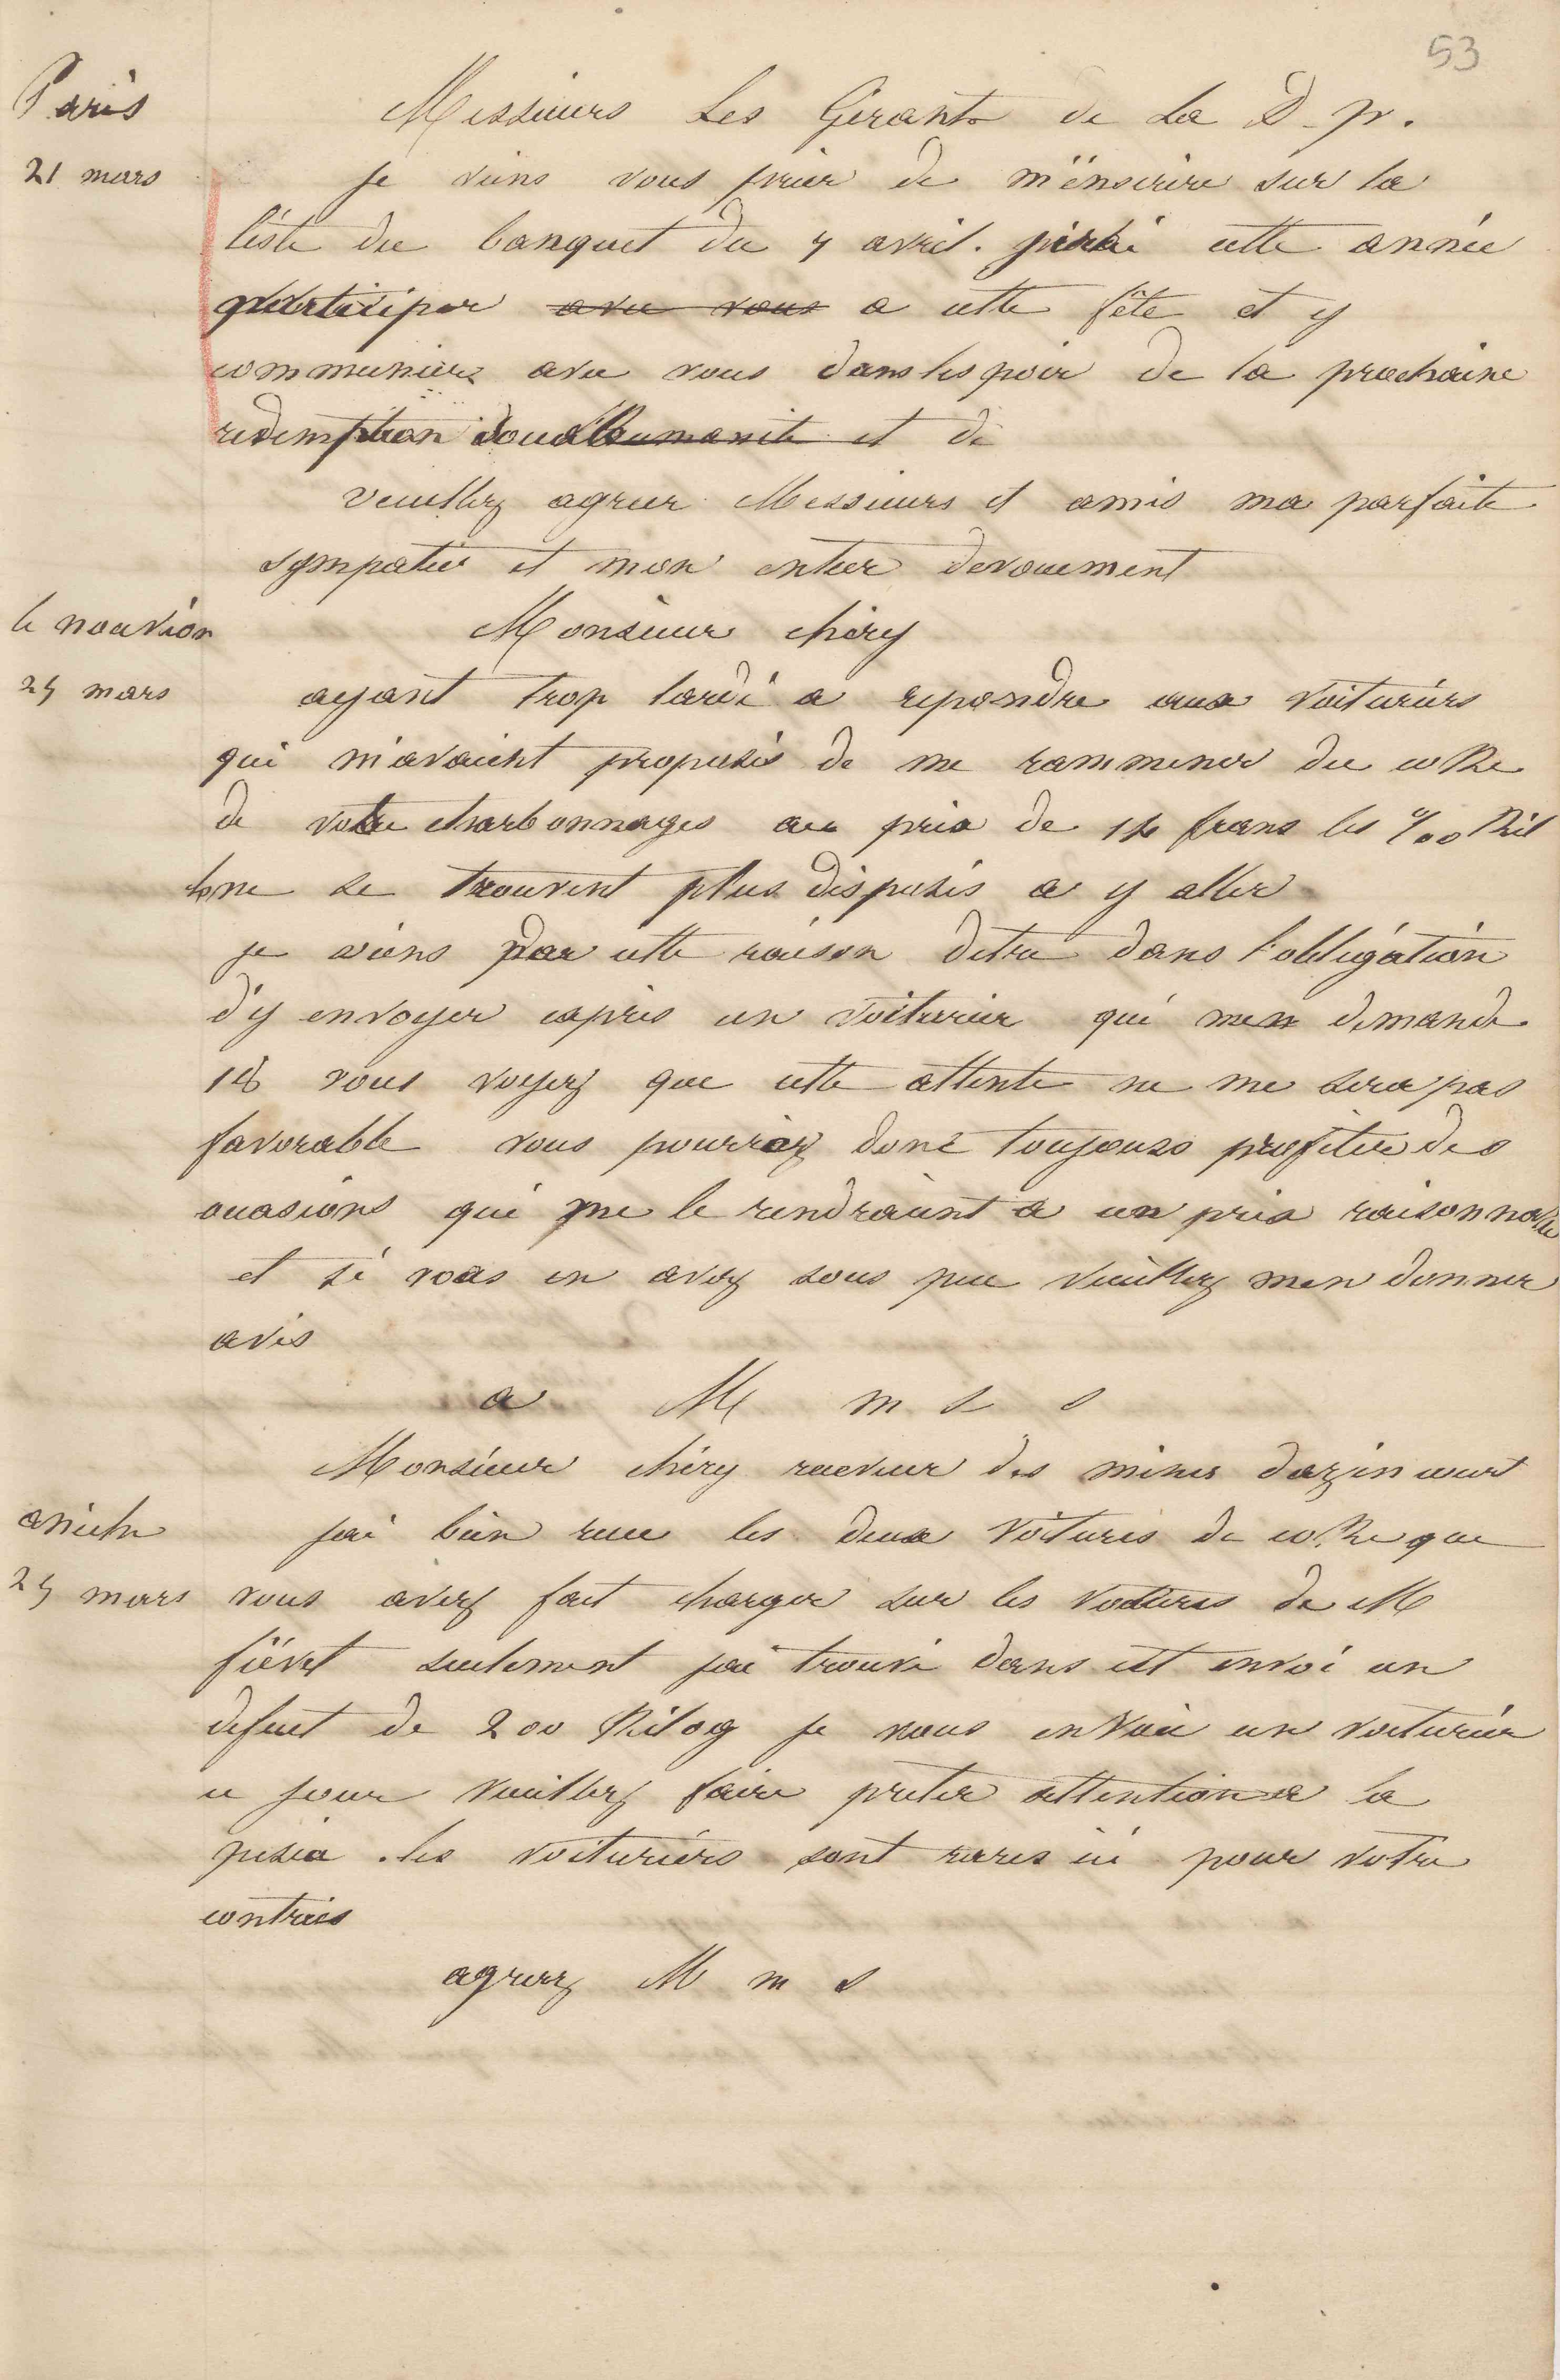 53
Paris
Messieurs Les Gerants de La D. p.
21 mars
je viens vous prier de m'enscrire sur la
liste du banquet du 7 avril. j'irai cette année
participer avec vous a cette fête et y
communier avec vous dans lespoir de la prochaine
redemption de l'humanite et de
veuillez agreer Messieurs et amis ma parfaite
sympatie et mon entier devouement
le nouvion
Monsieur chéry
27 mars
ayant trop tardé a repondre aux voituriers
qui m'avaient proposés de me rammener du coke
de votre charbonnages au prix de 14 frans les %00 kil
ne se trouvent plus disposés a y aller
je viens par cette raison detre dans l'obligation
d'y envoyer expres un voiturier qui men demande
18 vous voyez que cette attente ne me sera pas
favorable vous pourriez donc toujours profiter des
ocasions qui me le rendraient a un prix raisonnable
et si vous en avez sous peu veuillez men donner
avis
a M m s s
Monsieur chéry receveur des mines dazincourt
aniche
jai bien recu les deux voitures de coke que
27 mars
vous avez fait charger sur les voitures de M
fiévet seulement jai trouvé dans cet envoi un
defaut de 200 kilog je vous envoie un voiturier
ce jour veuillez faire preter attention a la
pesée . les voituriers sont rares ici pour votre
contrées
agreez M m s